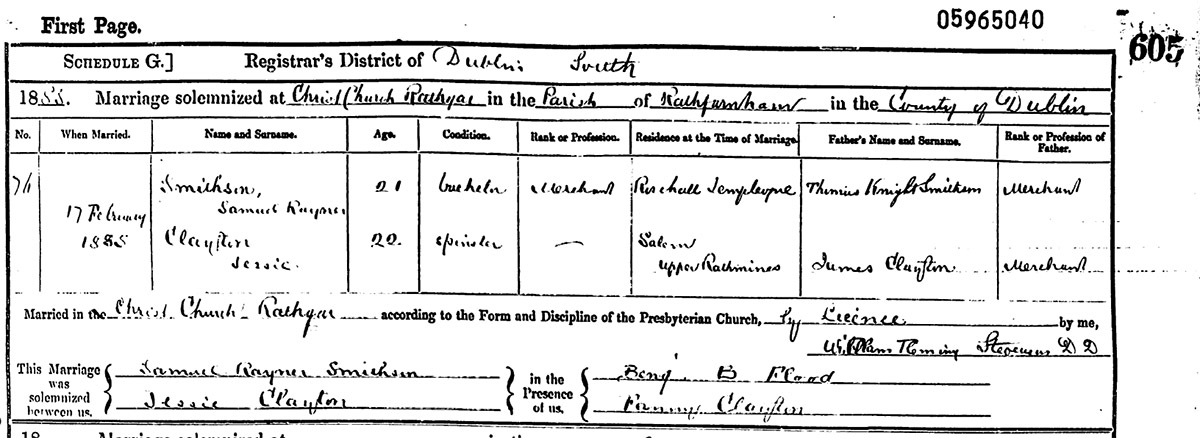 First Page.
05965040
605
SCHEDULE G.] Registrar's District of Dublin South
1888. Marriage solemnized at Christ Church Rathgar in the Parish of Rathfarnham in the County of Dublin
No. When Married. Name and Surname. Age. Condition. Rank or Profession. Residence at the Time of Marriage. Father's Name and Surname. Rank or Profession of Father.
Smithson, 21 bachelor Merchant Thomas Knight Smithson Merchant
17 February Samuel Rayner
1888 Clayton 22. spinster — Salem
Jessie. Upper Rathmines James Clayton Merchant
Married in the Christ Church Rathgar according to the Form and Discipline of the Presbyterian Church, by Licence by me,
William Fleming Stevenson D D
This Marriage was solemnized between us, Samuel Rayner Smithson in the Presence of us, Benj. B Flood
Jessie Clayton Fanny Clayton
18 Marriage solemnized at in the